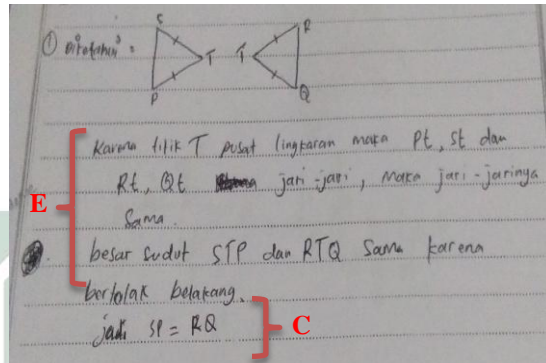 ① Diketahui :
S
R
T
T
P
Q
Karena titik T pusat lingkaran maka Pt, St dan
Rt, Qt jari-jari, maka jari-jarinya
Sama.
E
besar sudut STP dan RTQ Sama karena
bertolak belakang.
jadi SP = RQ
C